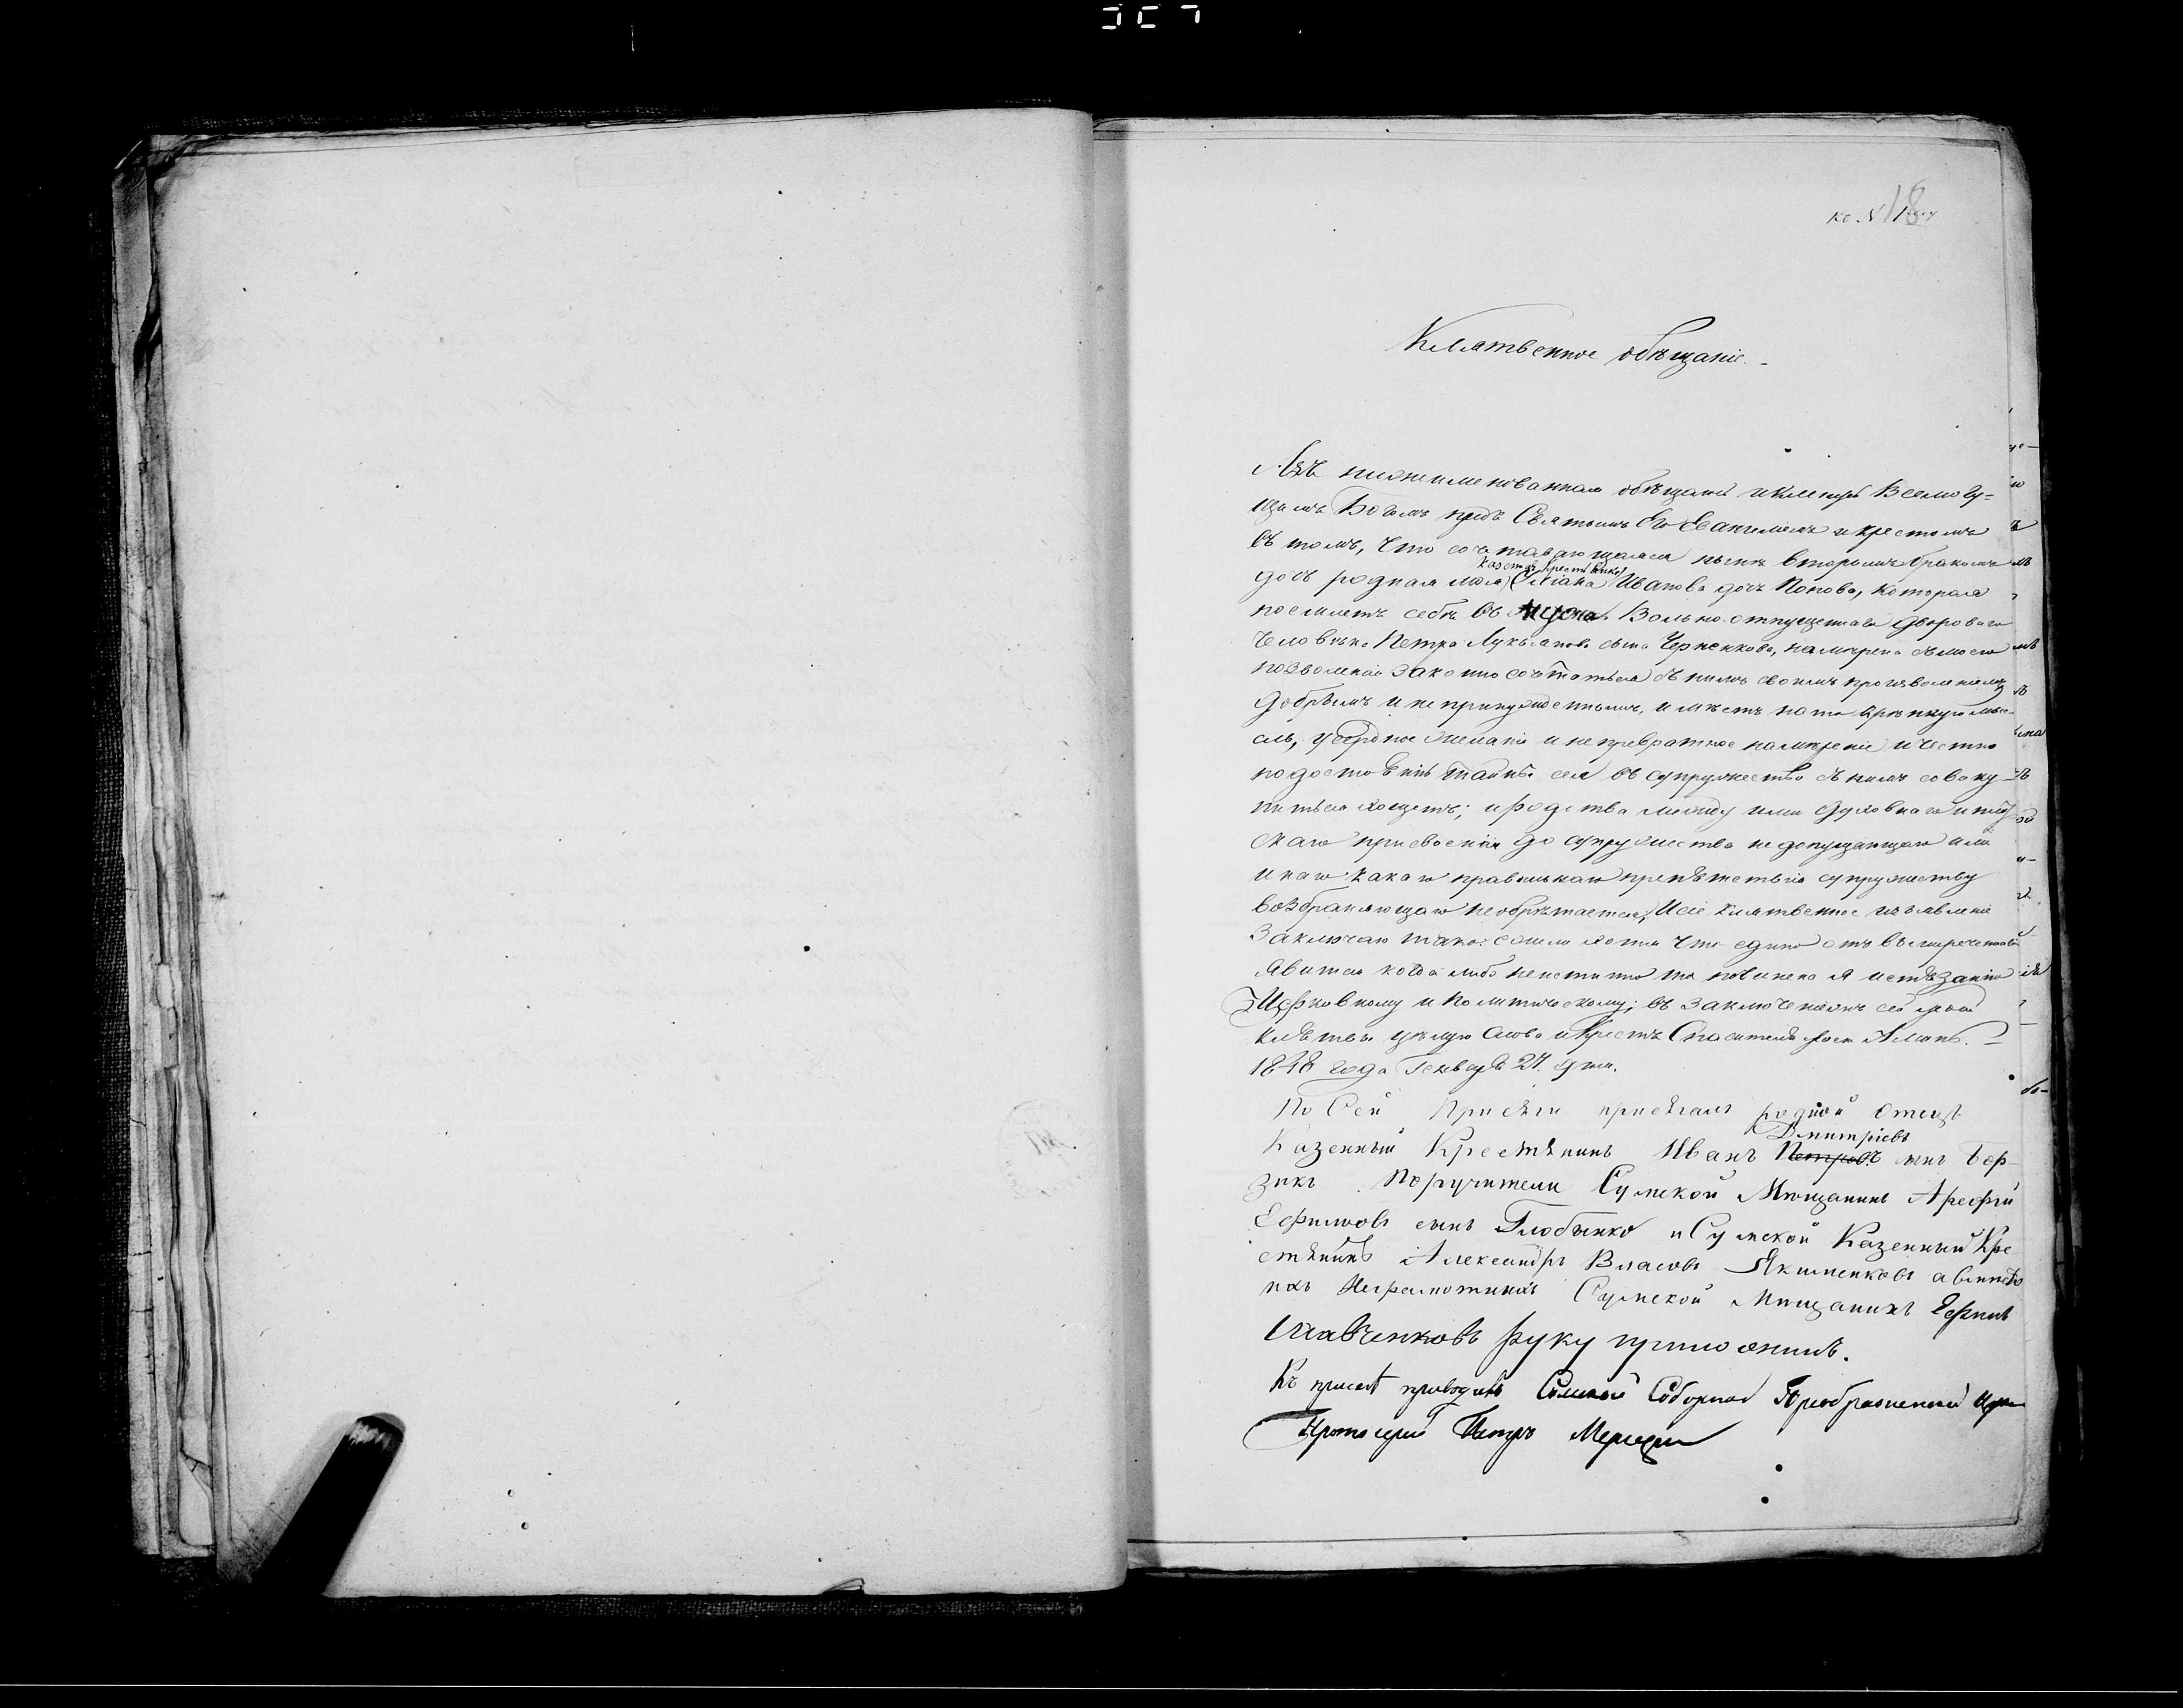 къ № 18
Клятвенное обѣщаніе.
Азъ нижеименованная обѣщаюсь и кленусь Всемогу-
щимъ Богомъ предъ Святымъ Его Евангелиемъ и крестомъ
въ томъ, что сочетавающаяся нынѣ вторымъ бракомъ
дочь родная моя Иванова дочь Попова, которая
поемлетъ себѣ въ мужа Вольно отпущеннаго двороваго
человѣка Петра Лукьянова сына Черненкова, намѣрена съ моего
позволенія законно сочтатися съ нимъ своимъ произволеніемъ
добрымъ и непринужденнымъ, и имѣетъ на то крѣпкую мы-
сль, усердное желаніе и непревратное намѣреніе и честно
по достоянію тайны сея въ супружество съ нимъ совоку-
питься хощетъ; и родства между ими духовнаго и плот-
скаго присвоенія до супружества не допущающаго или
инаго какаго правильнаго препятствія супружеству
возбраняющаго необрѣтается, и сіе клятвенное изъявленіе
Заключаю тако: ежели хотя что едино отъ вышереченнаго
явится когда либо неистинно то повинена я истязанію
Церковному и Политическому; въ заключеніижъ сей моей
клятвы цѣлую слова и Крестъ Спасителя моего Аминь.
1848 года Генваря 27. дня.
По Сей Присяги присягалъ родной отецъ
Казенный Крестянинъ Иванъ Петровъ Дмитріевъ сынъ Бор-
зикъ Поручители Сумской Мѣщанинъ Арефій
Ефимовъ сынъ и Сумской Казенный Кре-
стянинъ Александръ Власовъ Якименковъ а вмѣсто
ихъ Неграмотныхъ Сумской Мѣщанинъ Ефимъ
руку приложилъ.
Къ присягѣ приводилъ Сумской Соборной Преображенской церкви
Протоіерей Петръ